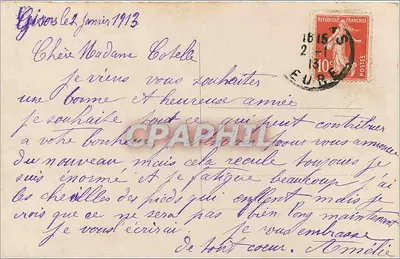 Gisors le 2 Janvier 1913
Chère Madame Cotelle
je viens vous souhaiter
une bonne et heureuse année
je souhaite tout ce qui peut contribuer
à votre bonheur pour vous annoncer
du nouveau mais cela recule toujours je
suis énorme et je fatigue beaucoup j'ai
les chevilles des pieds qui enflent mais je
crois que ce ne sera pas bien long maintenant
je vous écrirai. je vous embrasse
de tout coeur. Amélie
REPUBLIQUE FRANÇAISE
10
POSTES
16 15
2 - 1
13
EURE
CPARHPILL